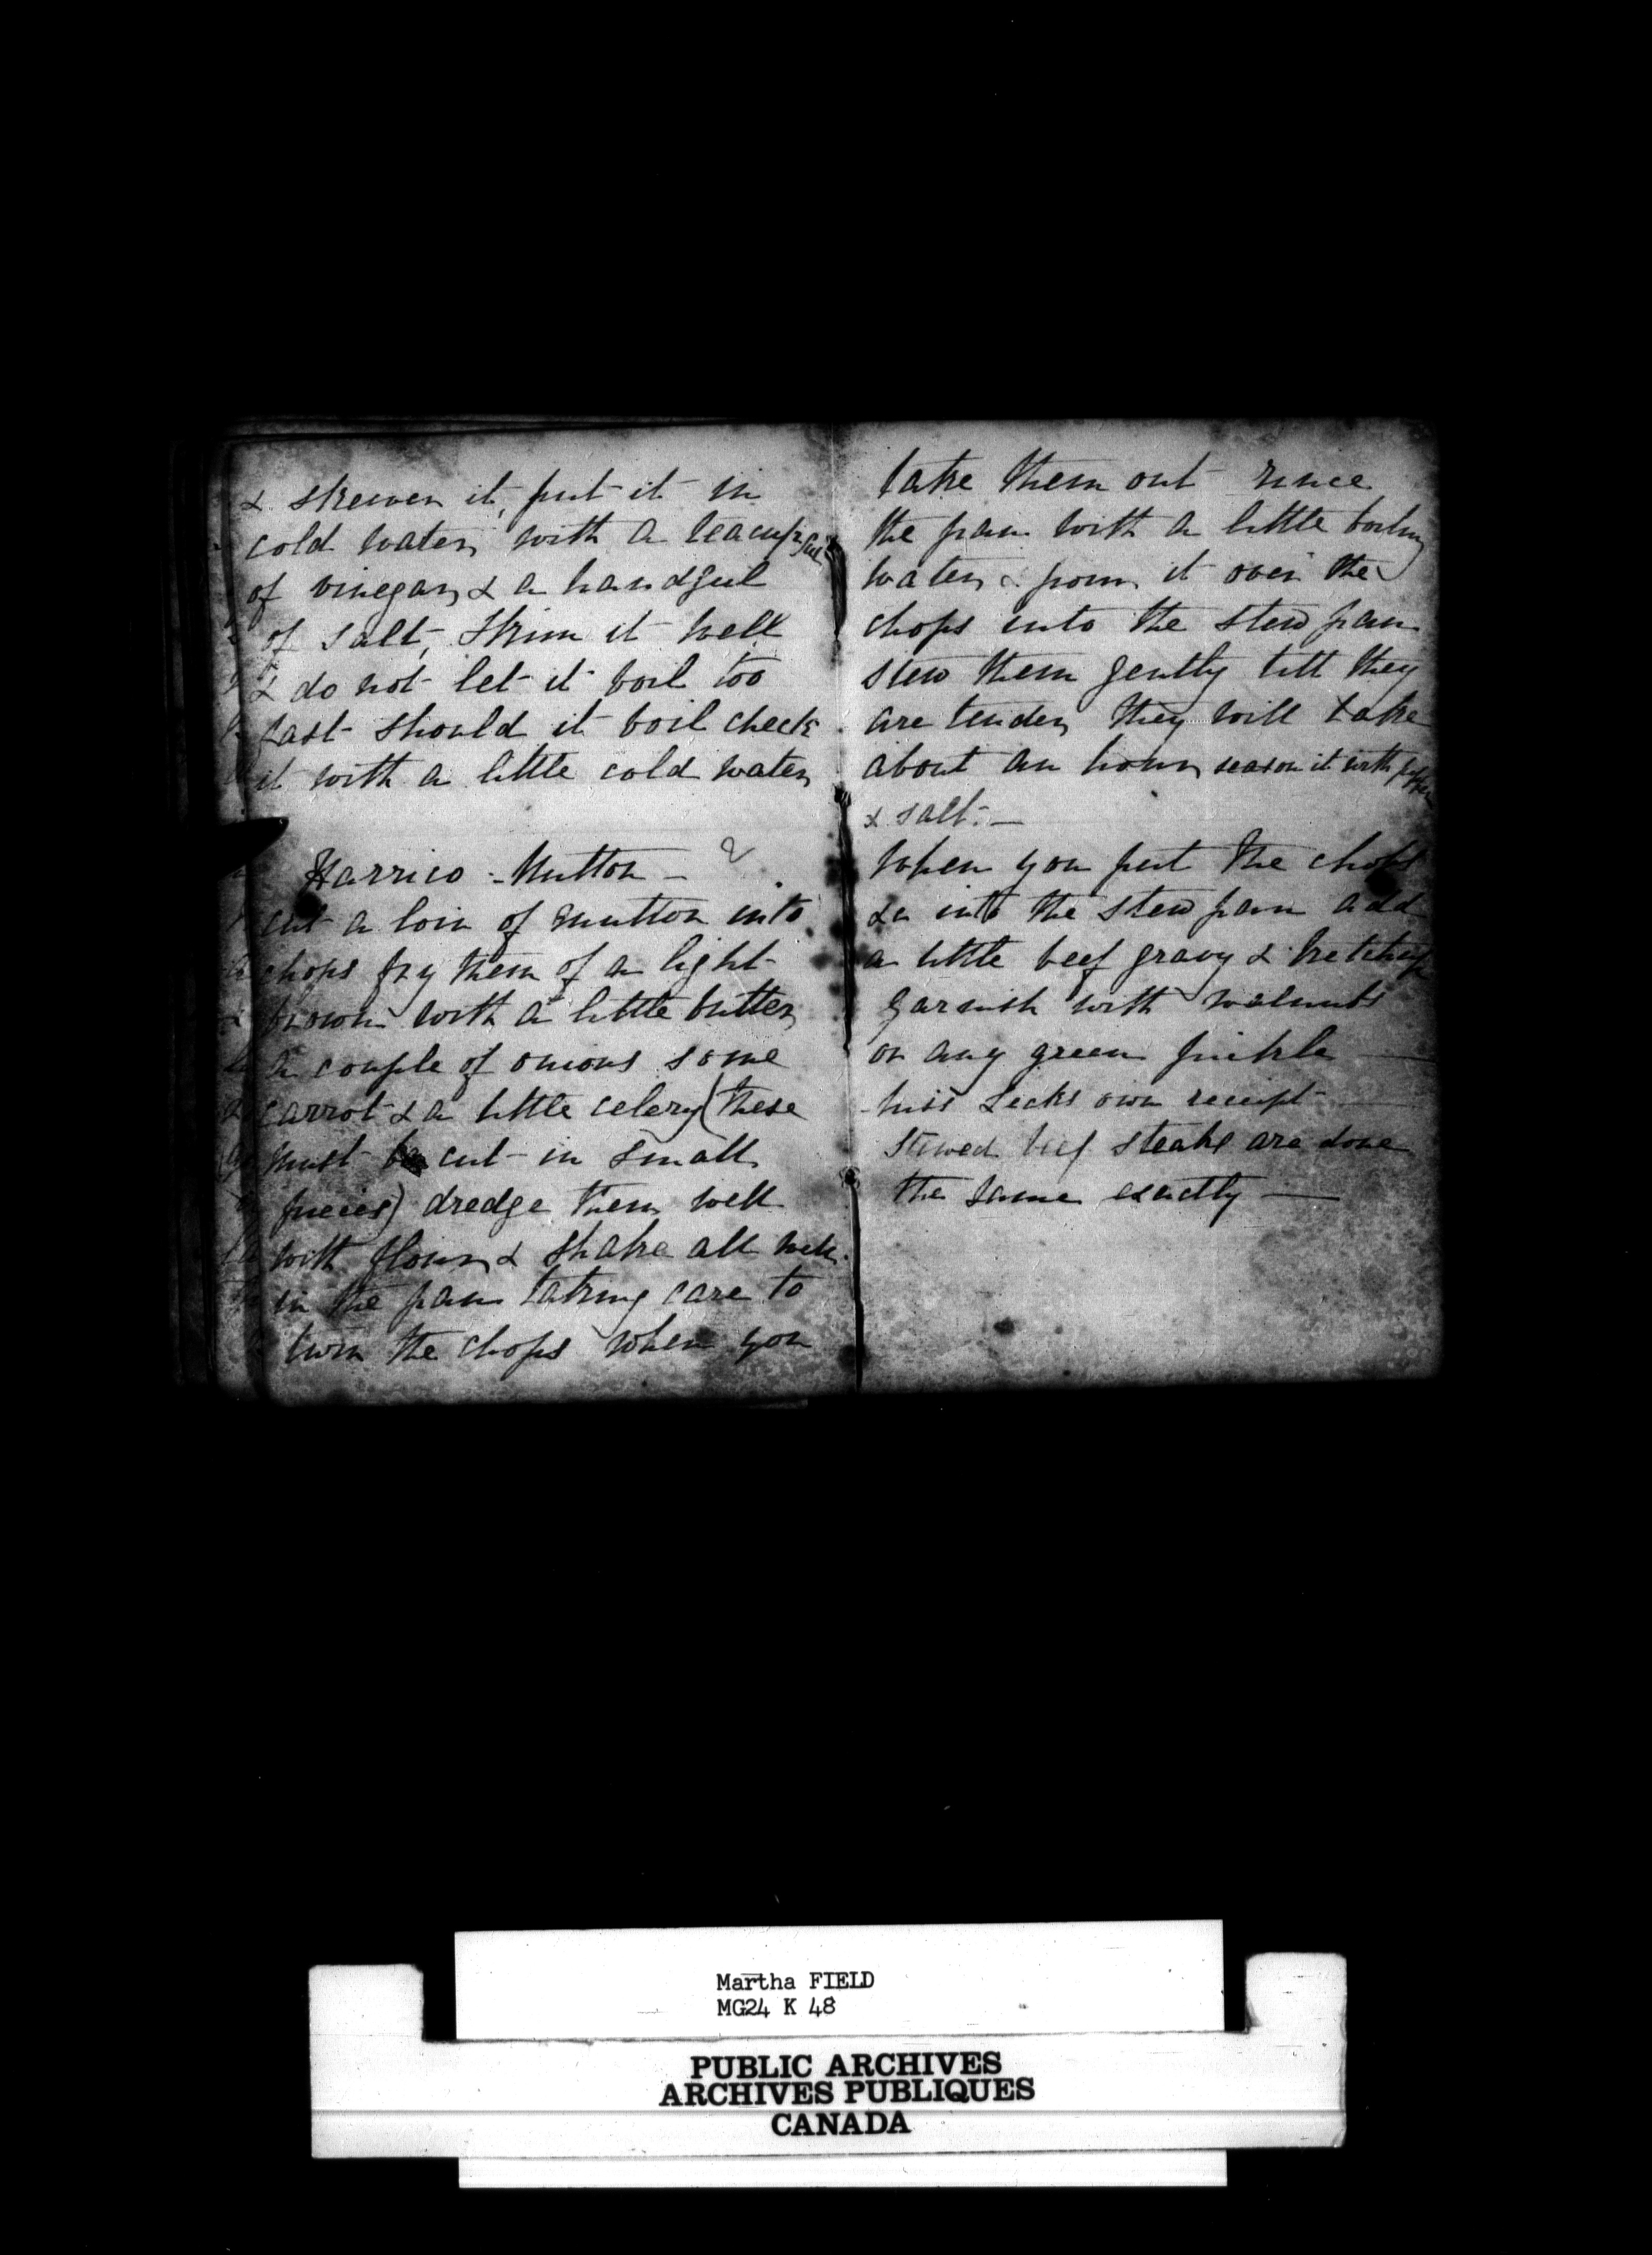 & skewer it, put it in
cold water with a teacupful
of vinegar & a handful
of salt, skim it well
& do not let it boil too
fast should it boil check
it with a little cold water
Harrico - Mutton -
cut a loin of mutton into
chops fry them of a light
brown with a little butter
a couple of onions some
carrot & a little celery (these
must be cut in small
pieces) dredge them well
with flour & shake all well
in the pan taking care to
turn the chops when you
take them out rince
the pan with a little boiling
water & pour it over the
chops into the stew pan
stew them gently till they
are tender they will take
about an hour season it with pepper
& salt. —
When you put the chops
&c into the stew pan add
a little beef gravy & ketchup
garnish with walnuts
or any green pickle —
own receipt —
stewed beef steaks are done
the same exactly —
Martha FIELD
MG24 K 48
PUBLIC ARCHIVES
ARCHIVES PUBLIQUES
CANADA